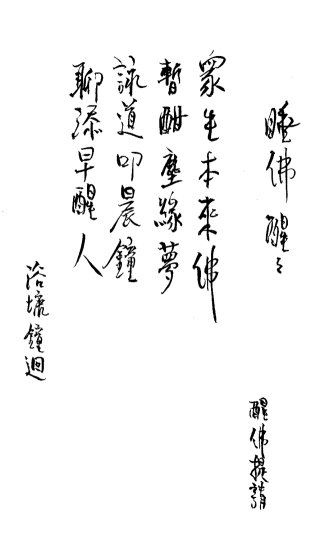 睡佛醒々
醒佛提請
眾生本來佛
暫酣塵緣夢
詠道叩晨鐘
聊添早醒人
浴壙鐘迴